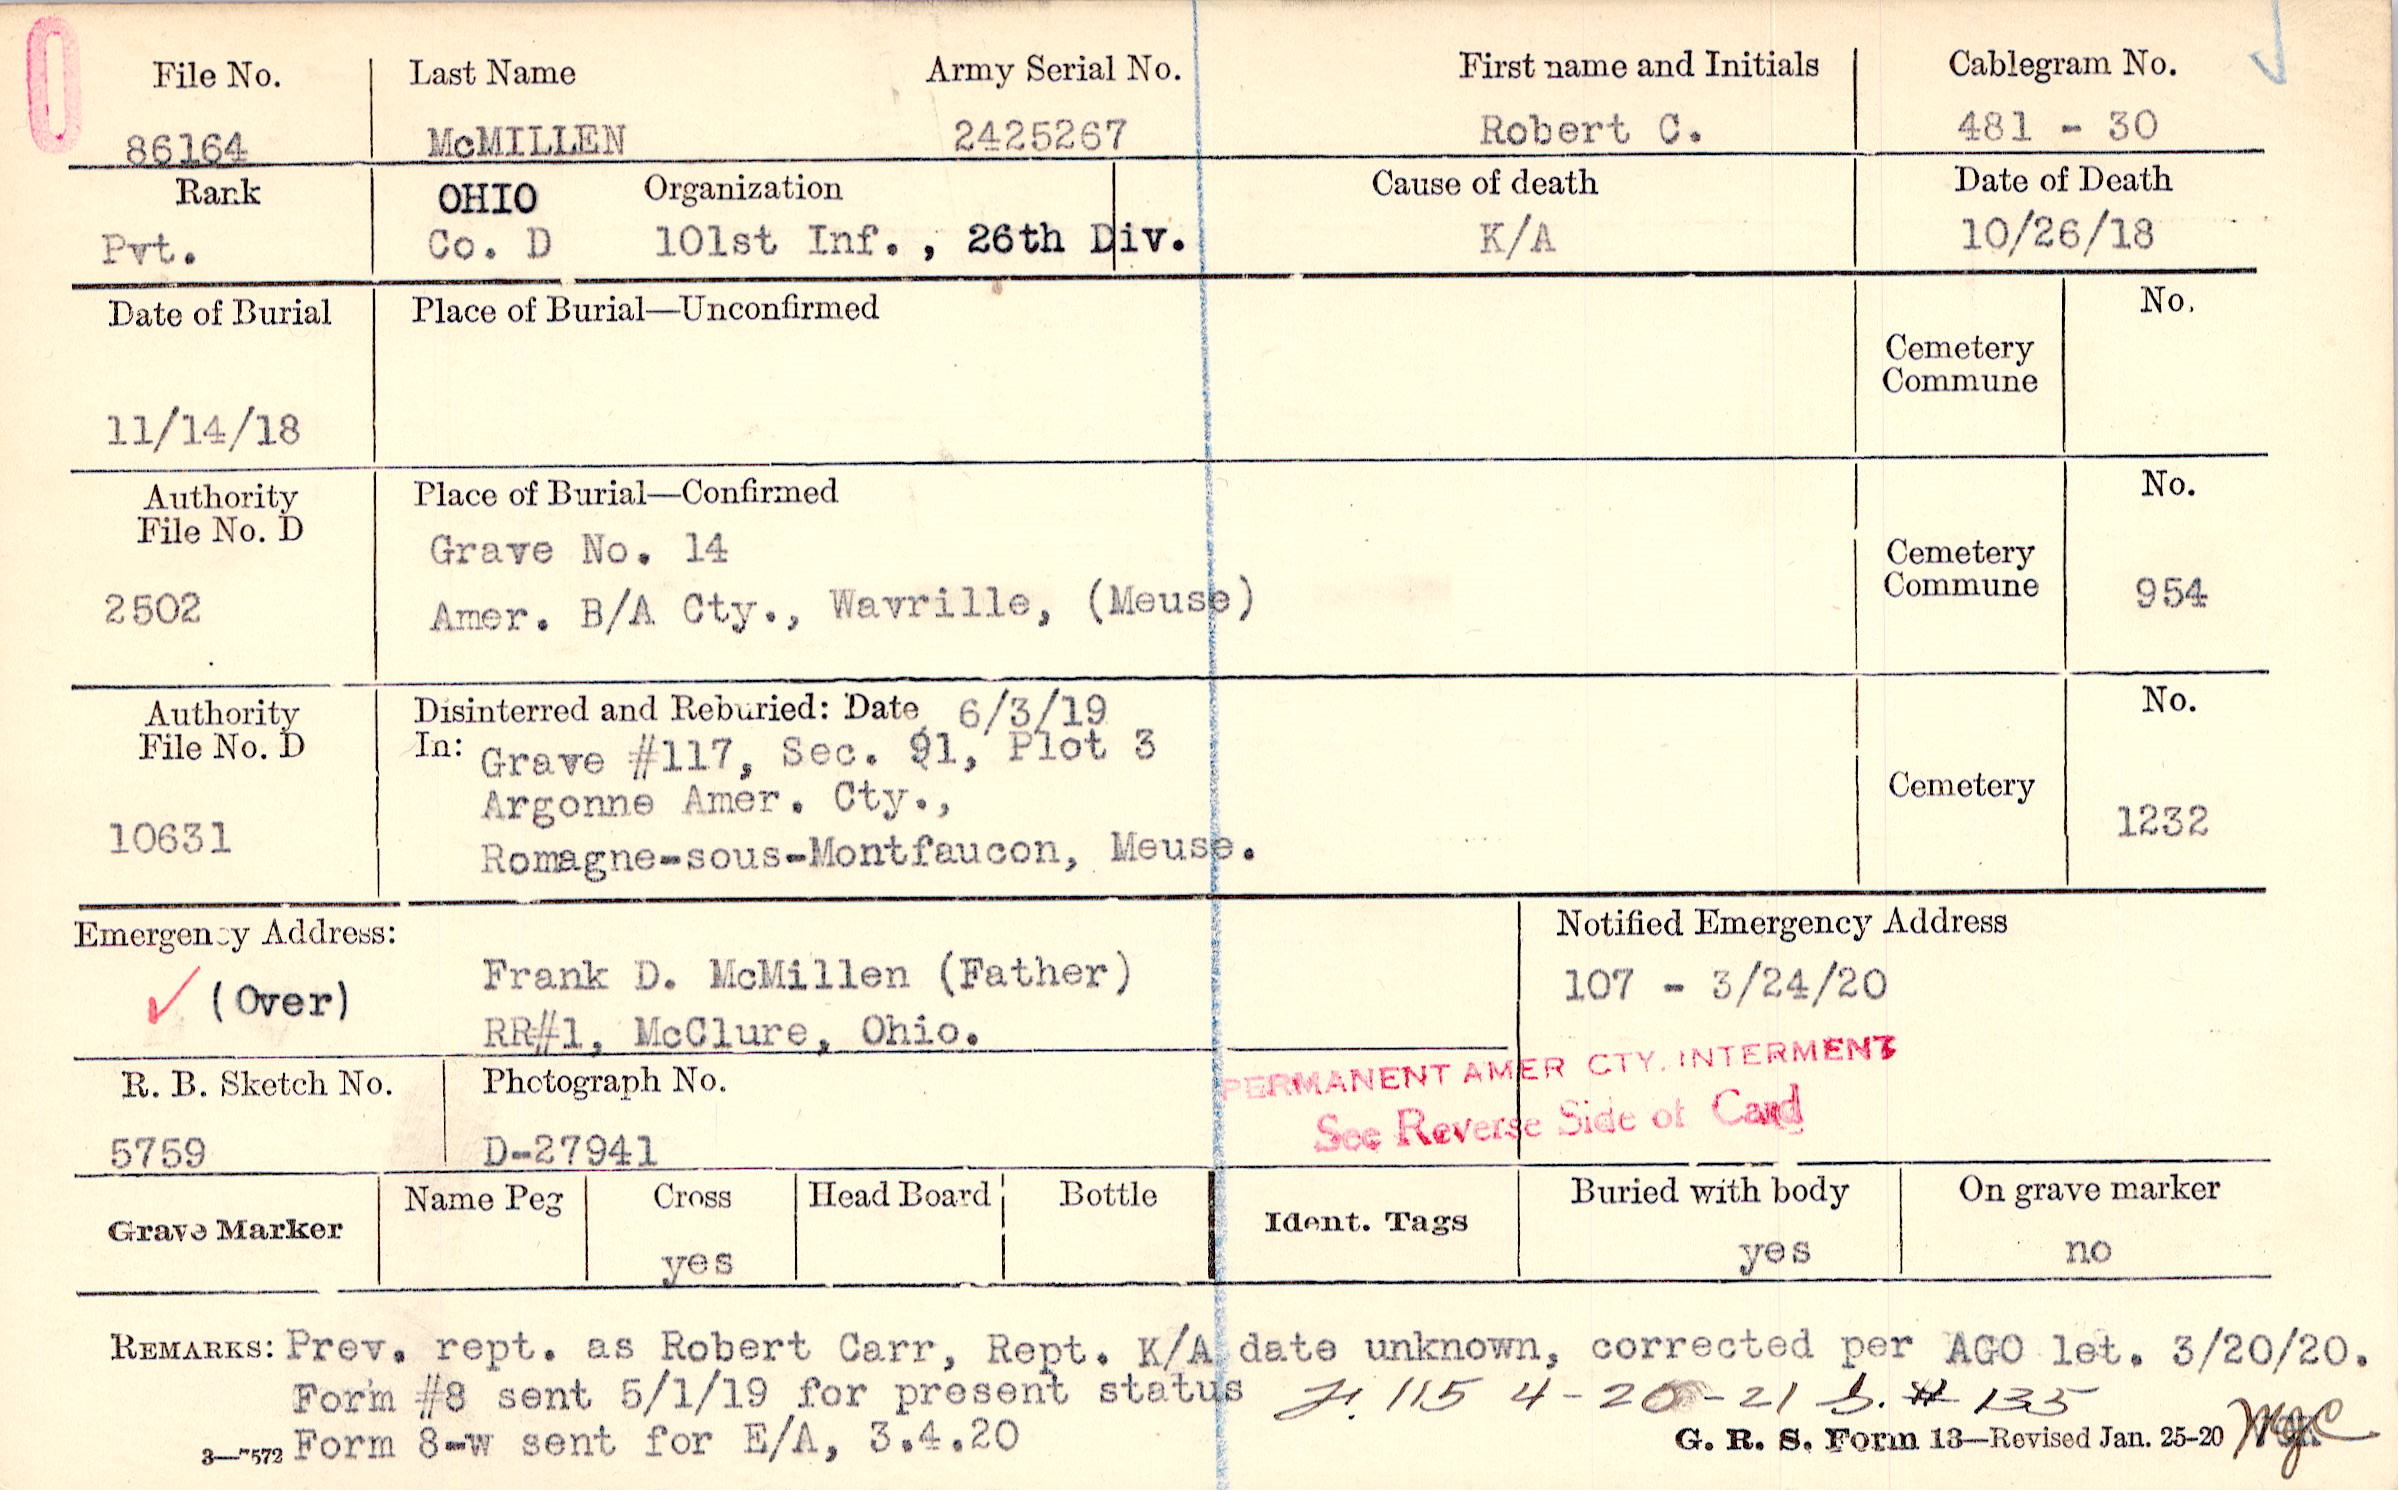 File No. Last Name Army Serial No. First name and Initials Cablegram No.
86164 McMILLEN 2425267 Robert C. 481 - 30
Rank OHIO Organization Cause of death Date of Death
Pvt. Co. D 101st Inf., 26th Div. K/A 10/26/18
Date of Burial Place of Burial—Unconfirmed No.
Cemetery
Commune
11/14/18
Authority Place of Burial—Confirmed No.
File No. D
Grave No. 14 Cemetery
2502 Amer. B/A Cty., Wavrille, (Meuse) Commune 954
Authority Disinterred and Reburied: Date 6/3/19 No.
File No. D In: Grave #117, Sec. 91, Plot 3
Argonne Amer. Cty., Cemetery
10631 Romagne-sous-Montfaucon, Meuse. 1232
Emergency Address: Notified Emergency Address
(Over) Frank D. McMillen (Father) 107 - 3/24/20
RR#1, McClure, Ohio.
PERMANENT AMER CTY. INTERMENT
See Reverse Side of Card
R. B. Sketch No. Photograph No.
5759 D-27941
Grave Marker Name Peg Cross Head Board Bottle Ident. Tags Buried with body On grave marker
yes yes no
REMARKS: Prev. rept. as Robert Carr, Rept. K/A date unknown, corrected per AGO let. 3/20/20.
Form #8 sent 5/1/19 for present status 115 4-20-21 # 135
3—7572 Form 8-w sent for E/A, 3.4.20 G. R. S. Form 13—Revised Jan. 25-20